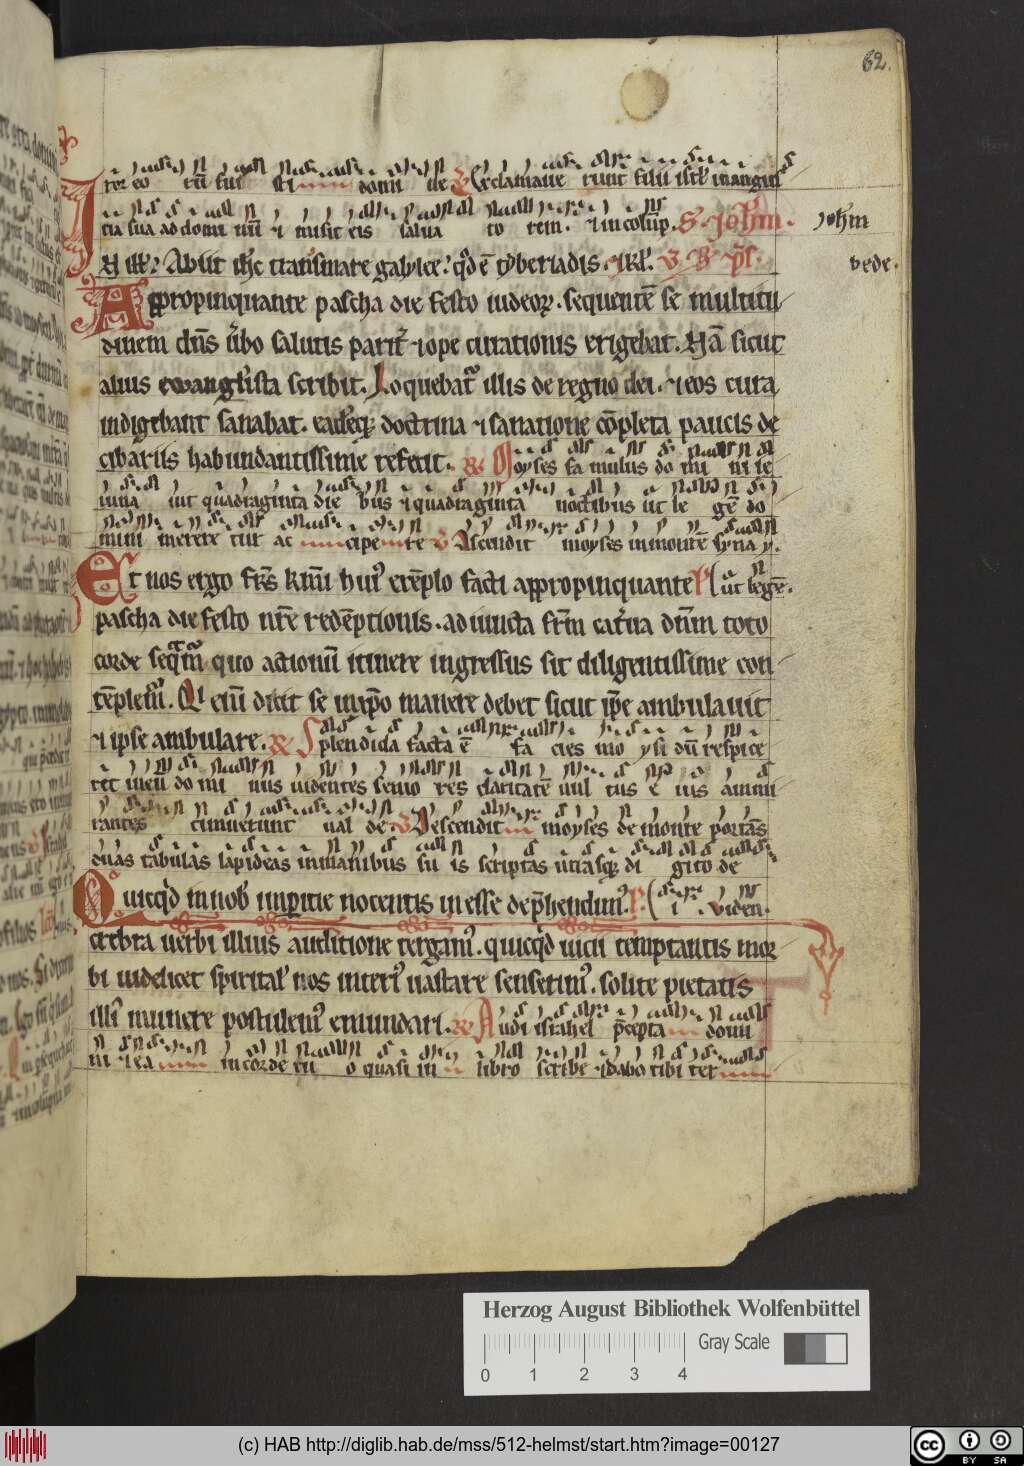 62.
domi ne Exclamaverunt filii isrl in angus
tia sua ad domi num ⁊ misit eis salva to rem. S. Johm. Johm
N ill. Abiit ihc trans mare galylee. qd ē tyberiadis. ⁊ rl. bede.
Appropinquante pascha die festo iudeoꝝ. sequentē se multitu
dinem dns ubo salutis parit ⁊ ope curationis erigebat. Nā sicut
alius ewanglista scribit. Loquebat illis de regno dei. ⁊ eos cura
indigebant sanabat. doctrina ⁊ sanatione cōpleta paucis de
cibariis habundantissime refecit. Moyses fa mulus do mi ni ie
iuna vit quadraginta die bus ⁊ quadraginta noctibus ut le gē do
mini merere tur ac cipe re Ascendit moyses in monte syna
Et nos ergo frs kmi hui exēplo facti appropinquante ut legē.
pascha die festo nre redēptionis. ad iuncta frm cat'va dnm toto
corde quo actionū itinere ingressus sit diligentissime con
tēplem. Qi eni dicit se in xpo manere debet sicut ipe ambulavit
⁊ ipse ambulare. Splendida facta ē fa cies mo ysi dū respice
ret in eū do mi nus videntes senio res claritatē vul tus e ius ammi
rantes timuerunt val de Descendit moyses de monte portās
duas tabulas lapideas in manibus su is scriptas utrasq; di gito de
Quicqd in nob nocentis inesse dephendim. i. viden.
crebra verbi illius auditione tergam. quicqd vicii temptantis mor
bi videlicet spiritat nos vastare senserim. solite pietatis
illi munere postulem emundari. Audi israhel pcepta domi
ni ⁊ ea in corde tu o quasi in libro scribe ⁊ dabo tibi ter
Herzog August Bibliothek Wolfenbüttel
Gray Scale
0 1 2 3 4
(c) HAB http://diglib.hab.de/mss/512-helmst/start.htm?image=00127
cc BY SA